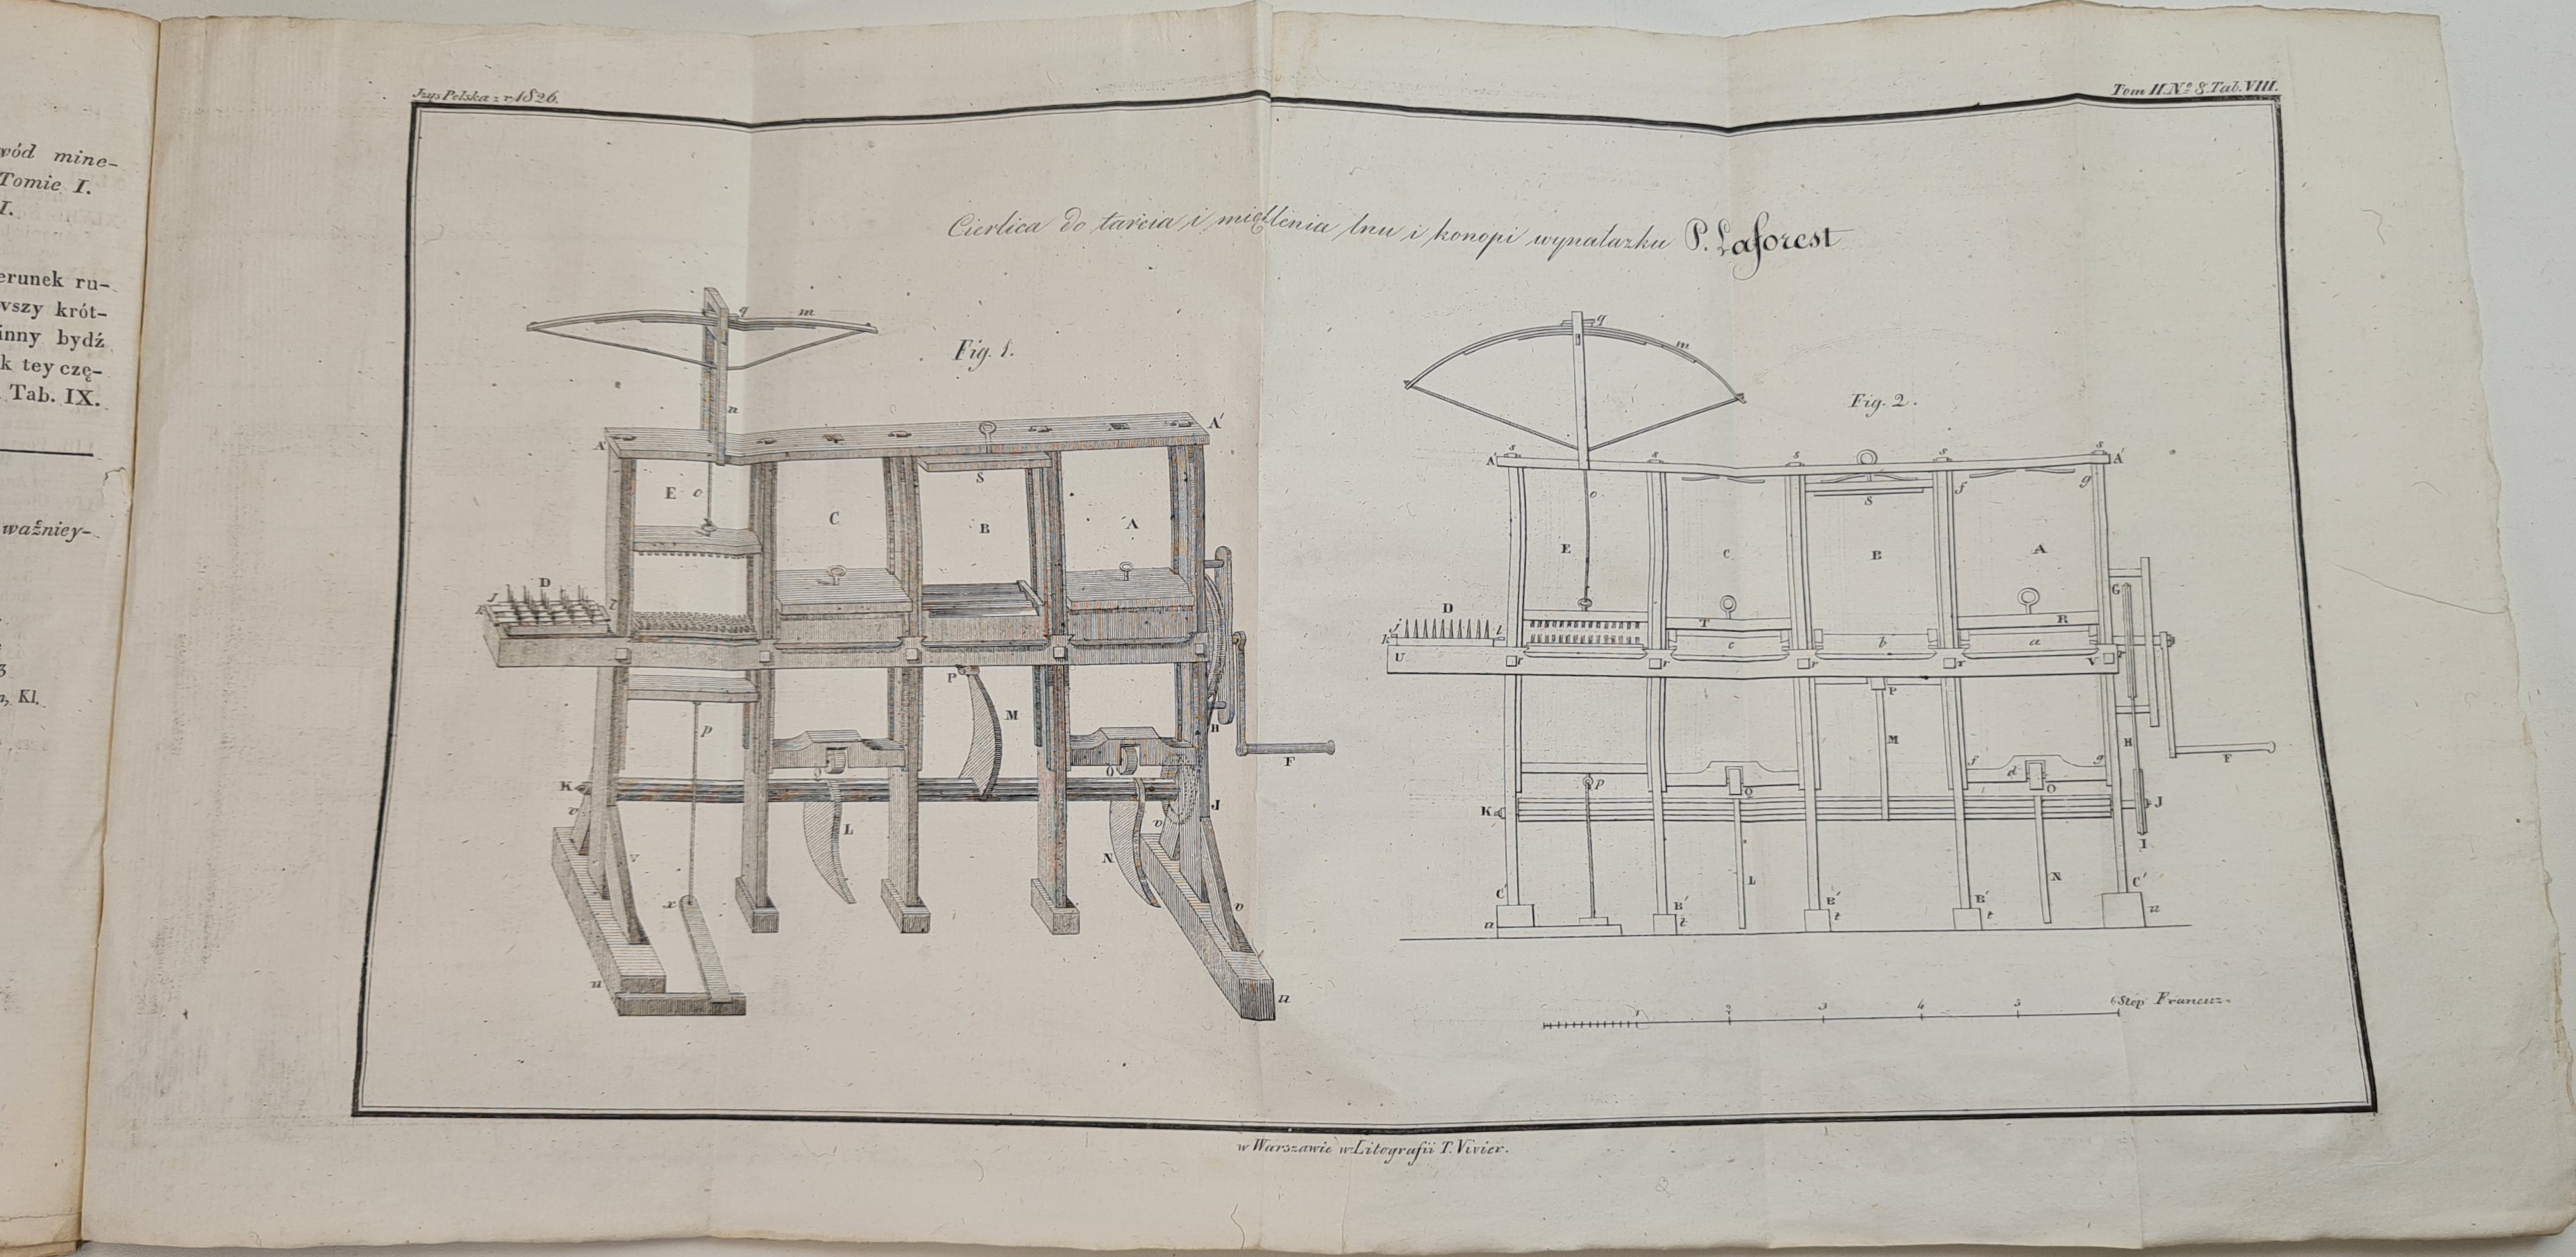 wód mine-
Tomie I.
I.
erunek ru-
wszy krót-
inny bydź
k tey czę-
Tab. IX.
ważniey-
Kl.
Izys Polska z r. 1826.
Tom II. Nº 8. Tab. VIII.
Cierlica do tarcia i międlenia lnu i konopi wynalazku P. Laforest
Fig. 1.
q m
n
A' A'
E o C S B A
D
J l
P
p M H
Q O F
K J
v L v
v N
x o
u n
Fig. 2.
q
m
s s s s s
A' A'
o S f g
E C B A
D G
j k l T R
U c b a V
r r r r
P
M H
p Q f d O g F
K J
I
L N
C' B' B' B' C'
n t t t u
1 2 3 4 5 6 Stóp Francuz.
w Warszawie w Litografii T. Vivier.